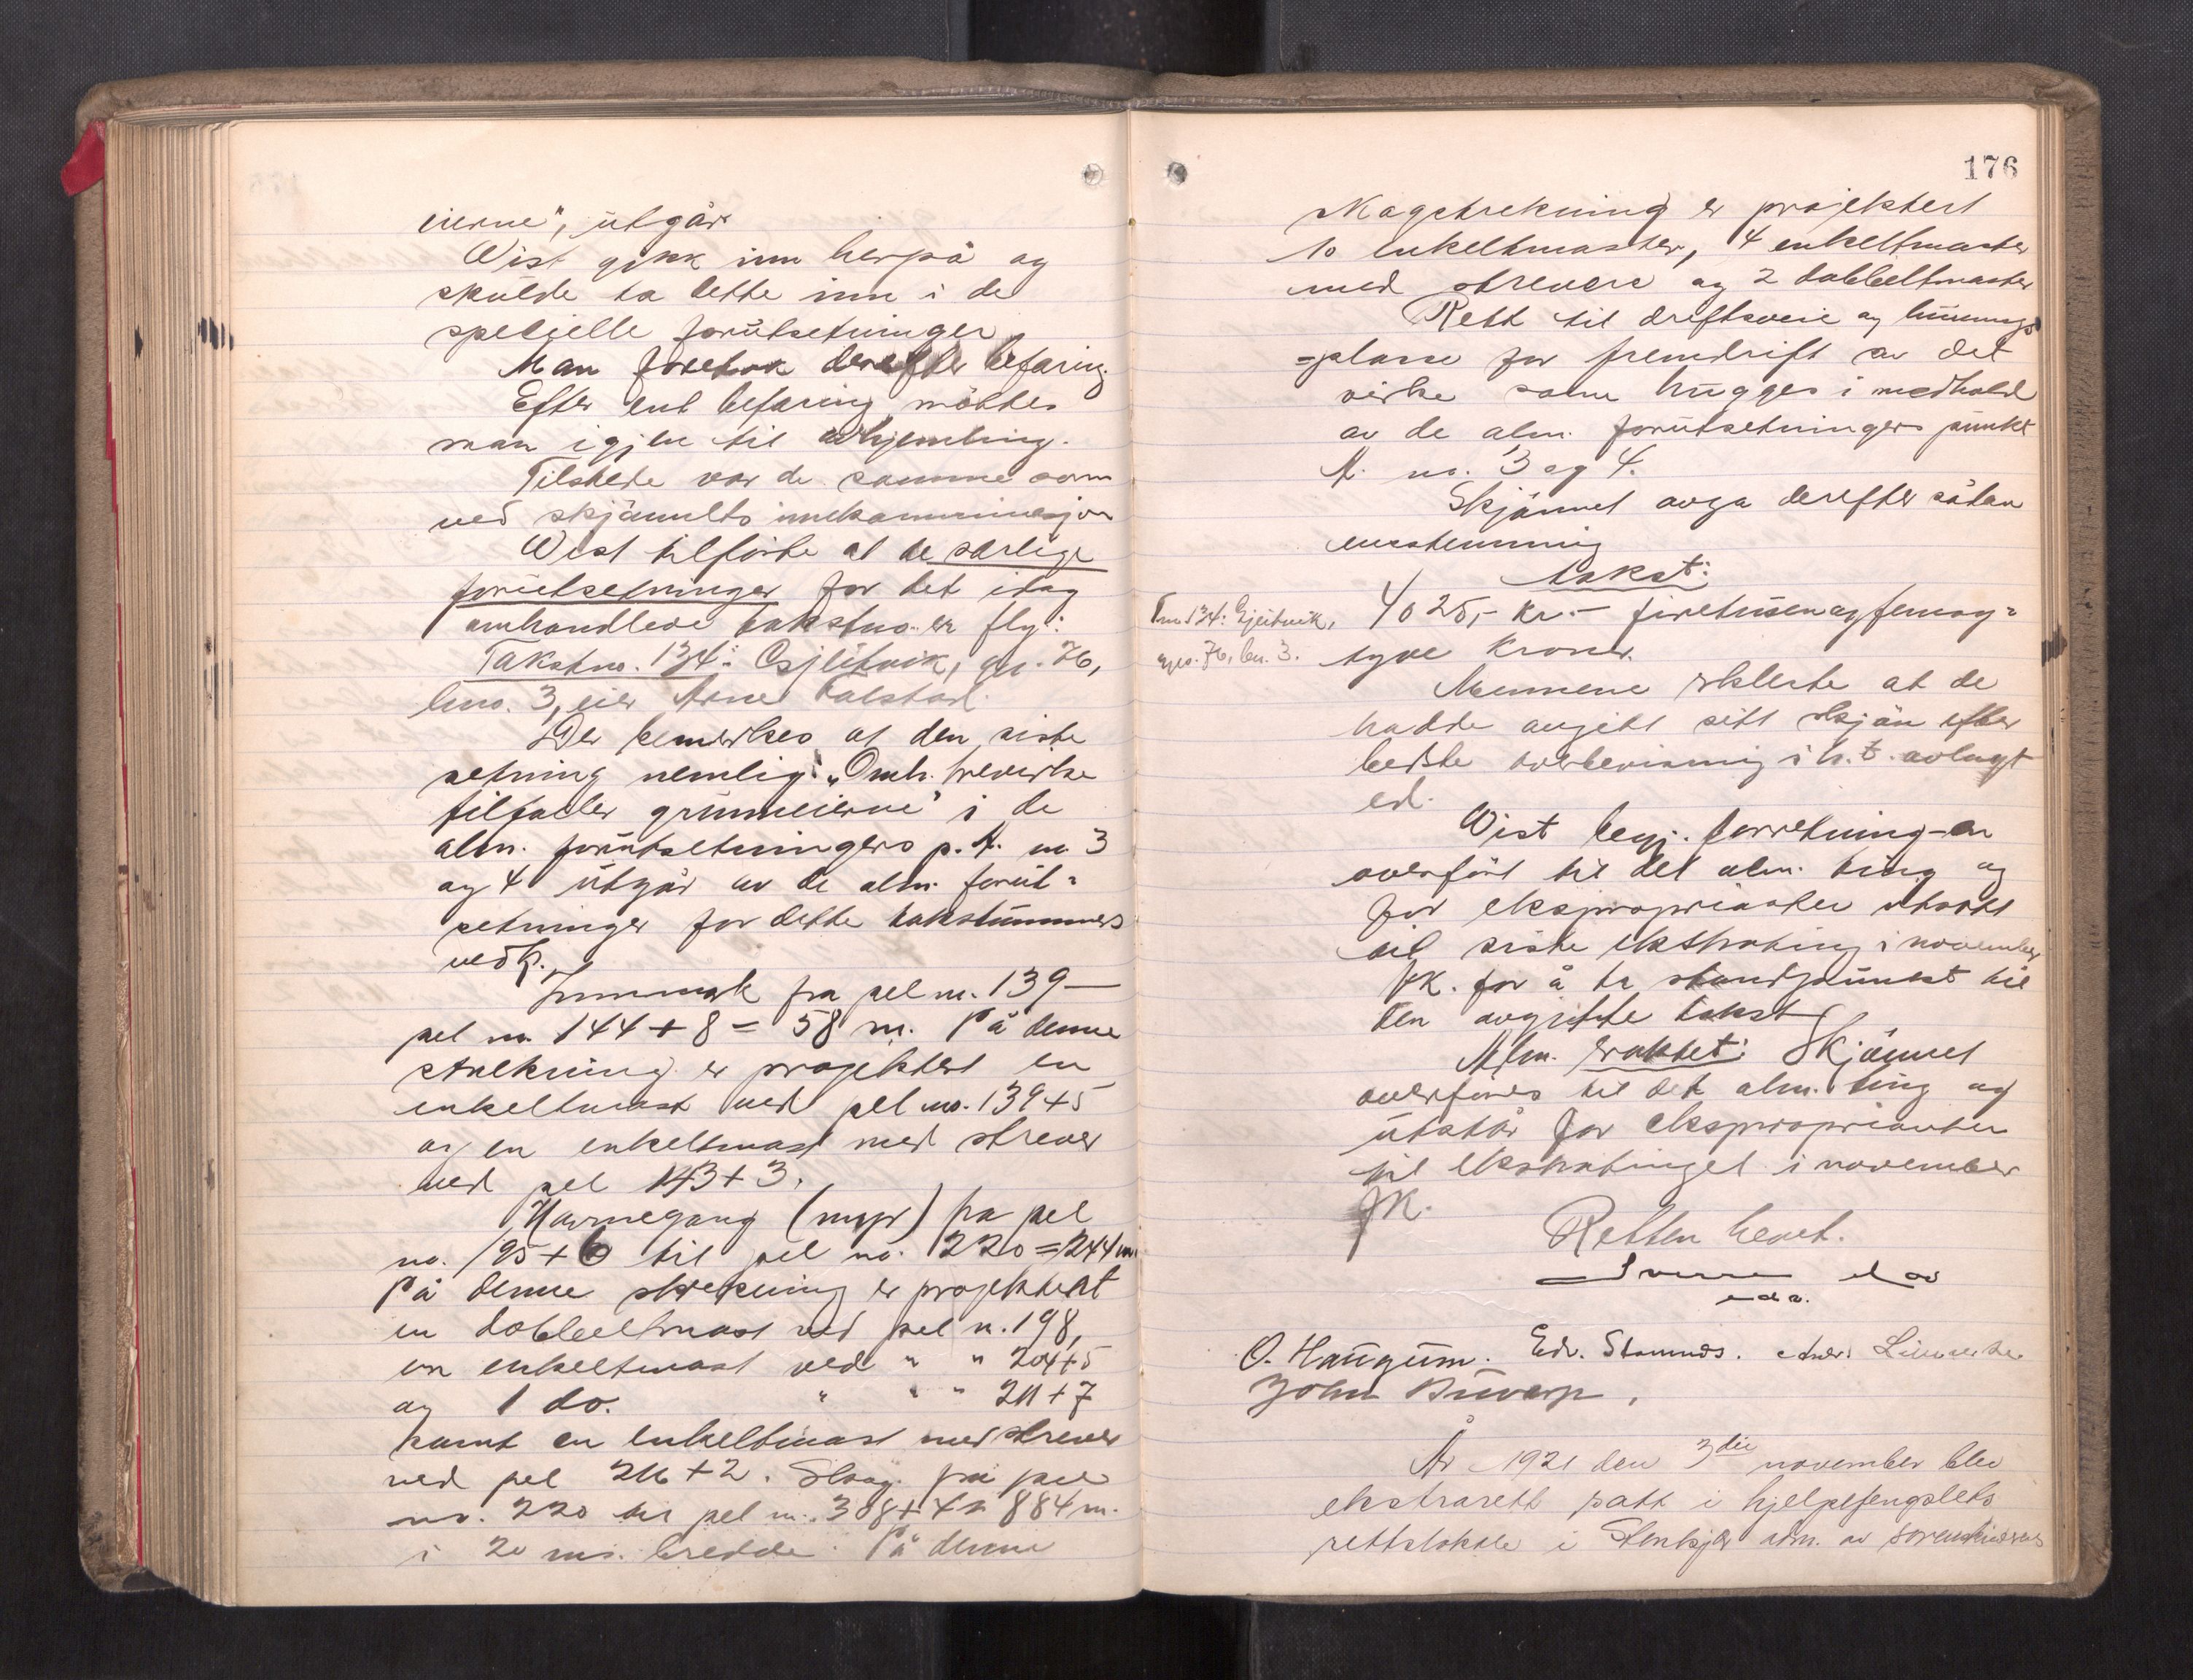 eierne", utgår.
Wist gikk inn herpå og
skulde ta dette inn i de
specielle forutsetninger.
Man foretok derefter befaring.
Efter endt befaring möttes
man igjen til avhjemling.
Tilstede var de samme som
ved skjönnets
Wist tilförte at de særlige
forutsetninger for det idag
omhandlede takstno. er flg:
Takstno. 134: Gjeitvik, gn. 76,
bno. 3, eier Arne Falstad.
Der bemerkes at den siste
setning nemlig: "Omh. trevirke
tilfaller grunneierne" i de
alm. forutsetningers p. A. no 3
og 4 utgår av de alm. forut=
setninger for dette takstnummers
vedk.
Innmark fra pel no. 139 —
pel no. 144 + 8 = 58 m. På denne
strekning er projektert en
enkeltmast ved pel no. 139 + 5
og en enkeltmast med strever
ved pel 143 + 3.
Havnegang (myr) fra pel
no. 195 + 6 til pel no. 220 = 244 m.
På denne strekning er projektert
en dobbeltmast ved pel n. 198,
en enkeltmast ved " " 204+5
og 1 do. " " " 211 + 7
samt en enkeltmast med strever
ved pel 216 + 2. Skog fra pel
no. 220 til pel no. 308 + 4 = 884 m.
i 20 ms. bredde. På denne
176
skogstrekning er projektert
10 enkeltmaster, 4 enkeltmaster
med strevere og 2 dobbeltmaster
Rett til driftsveie og lunnings
=plasse for fremdrift av det
virke som hugges i medhold
av de alm. forutsetningers punkt
A. no. 3 og 4.
Skjönnet avga derefter sådan
enstemmig
takst:
T.no 134: Gjeitvik,
gno. 76, bn. 3.
4025,- kr. - firetusenogfemog=
tyve kroner.
Mennene erklærte at de
hadde avgitt sitt skjön efter
bedste overbevisning i h. t. avlagt
ed.
Wist begj. forretningen
overfört til det alm. ting og
for ekspropriaten utsatt
til siste ekstrating i november
fk. for å ta standpunkt til
den avgitte takst.
Alm. vaktet: Skjönnet
overföres til det alm. ting og
utstår for ekspropriaten
til ekstratinget i november
fk.
Retten hevet.
Sverre
O. Haugum. Edv. Stamnes.
John Buvarp.
År 1921 den 3die november blev
ekstrarett satt i hjelpefengslets
rettslokale i Stenkjær adm. av sorenskriveren